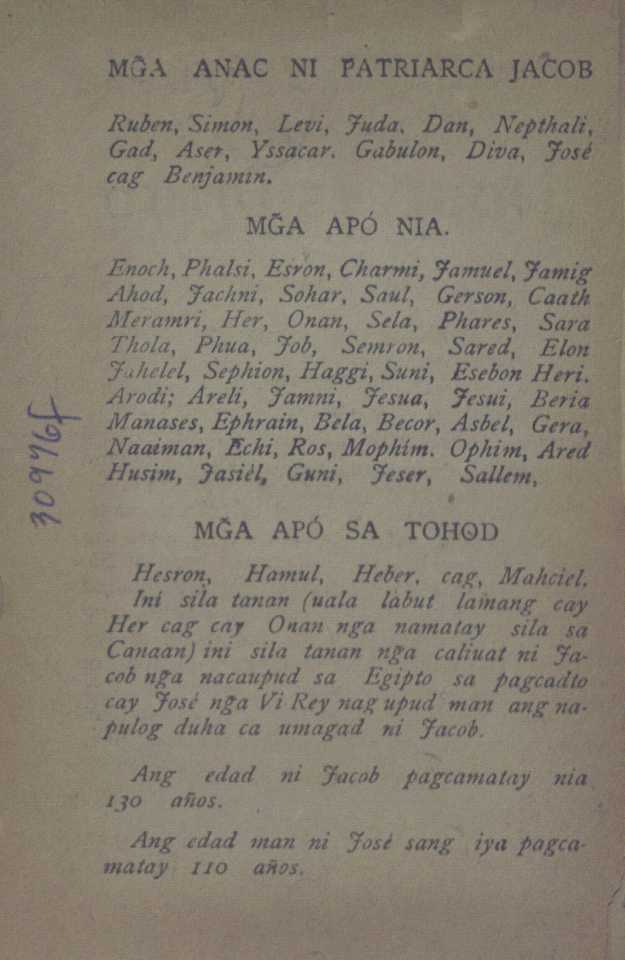 MG̃A ANAC NI PATRIARCA JACOB
Ruben, Simon, Levi, Juda. Dan, Nepthali,
Gad, Aser, Yssacar. Gabulon, Diva, José
cag Benjamin.
MG̃A APÓ NIA.
Enoch, Phalsi, Esron, Charmi, Jamuel, Jamig
Ahod, Jachni, Sohar, Saul, Gerson, Caath
Meramri, Her, Onan, Sela, Phares, Sara
Thola, Phua, Job, Semron, Sared, Elon
Jahelel, Sephion, Haggi, Suni, Esebon Heri.
Arodi; Areli, Jamni, Jesua, Jesui, Beria
Manases, Ephrain, Bela, Becor, Asbel, Gera,
Naaiman, Echi, Ros, Mophim. Ophim, Ared
Husim, Jasiél, Guni, Jeser, Sallem,
MG̃A APÓ SA TOHOD
Hesron, Hamul, Heber. cag, Mahciel.
Ini sila tanan (uala labut lamang cay
Her cag cay Onan nga namatay sila sa
Canaan) ini sila tanan ng̃a caliuat ni Ja-
cob ng̃a nacaupud sa Egipto sa pagcadto
cay José ng̃a Vi Rey nag upud man ang na-
pulog duha ca umagad ni Jacob.
Ang edad ni Jacob pagcamatay nia
130 años.
Ang edad man ni José sang iya pagca-
matay 110 años.
30976f